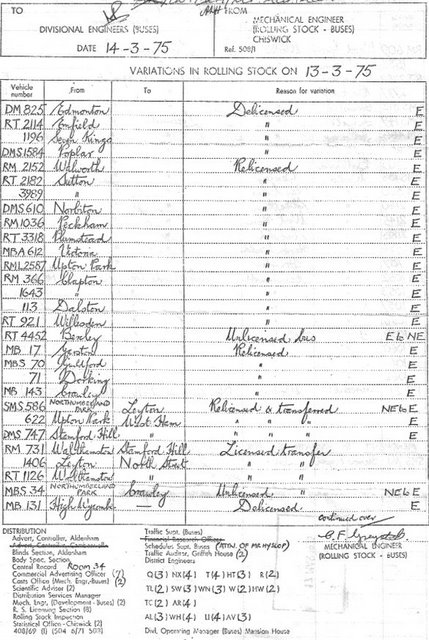 TO
FROM
DIVISIONAL ENGINEERS (BUSES)
MECHANICAL ENGINEER
(ROLLING STOCK - BUSES)
CHISWICK
DATE 14-3-75
Ref. 508/1
VARIATIONS IN ROLLING STOCK ON 13-3-75
Vehicle number From To Reason for variation
DM 825 Edmonton Delicensed E
RT 2114 Enfield " E
1196 Seven Kings " E
DMS 1584 Poplar " E
RM 2152 Walworth Relicensed E
RT 2182 Sutton " E
3989 " " E
DMS 610 Norbiton " E
RM 1036 Peckham " E
RT 3318 Plumstead " E
MBA 612 Victoria " E
RML 2587 Upton Park " E
RM 366 Clapton " E
1643 " " E
113 Dalston " E
RT 921 Willesden " E
RT 4452 Bexley Unlicensed bus E to NE
MB 17 Garston Relicensed E
MBS 70 Guildford " E
71 Dorking " E
MB 143 Crawley " E
SMS 586 NORTHUMBERLAND PARK Leyton Relicensed & transferred NE to E
622 Upton Park West Ham " " " E
DMS 747 Stamford Hill " " " " E
RM 731 Walthamstow Stamford Hill Licensed transfer
1406 Leyton North Street " "
RT 1126 Walthamstow " " " "
MBS 34 NORTHUMBERLAND PARK Crawley Unlicensed " NE to E
MB 131 High Wycombe — Delicensed E
continued over
DISTRIBUTION
Advert. Controller, Aldenham
Blinds Section, Aldenham
Body Spec. Section
Central Record ROOM 34
Commercial Advertising Officer
Costs Office (Mech. Engr.-Buses) (2)
Scientific Adviser (2)
Distribution Services Manager
Mech. Engr. (Development - Buses) (2)
R. S. Licensing Section (8)
Rolling Stock Inspection
Statistical Office - Chiswick (2)
408/69 B) (504 6/71 503)
Traffic Supt. (Buses)
Financial Accounts Officer
Schedules Supt. (Buses) (ATTN. OF MR HYSLOP)
Traffic Auditor, Griffith House (2)
District Engineers
Q (3) NX (4) T (4) HT (3) R (2)
TL (2) SW (3) WN (3) W (2) HW (2)
TC (2) AR (4)
AL (3) WH (4) U (4) AV (3)
Divl. Operating Manager (Buses) Mansion House
MECHANICAL ENGINEER
(ROLLING STOCK - BUSES)